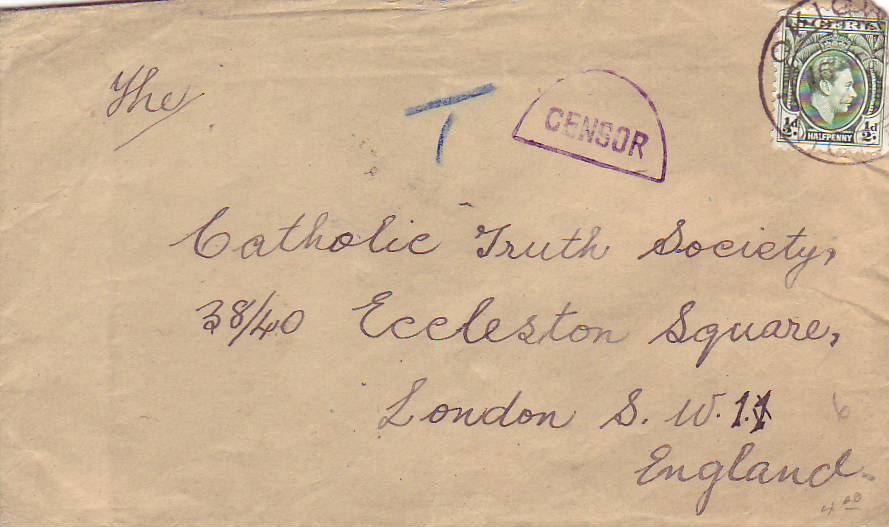 The
T
CENSOR
NIGERIA
½d. HALFPENNY ½d.
Catholic Truth Society,
38/40 Eccleston Square,
London S. W. 1.
England.
6